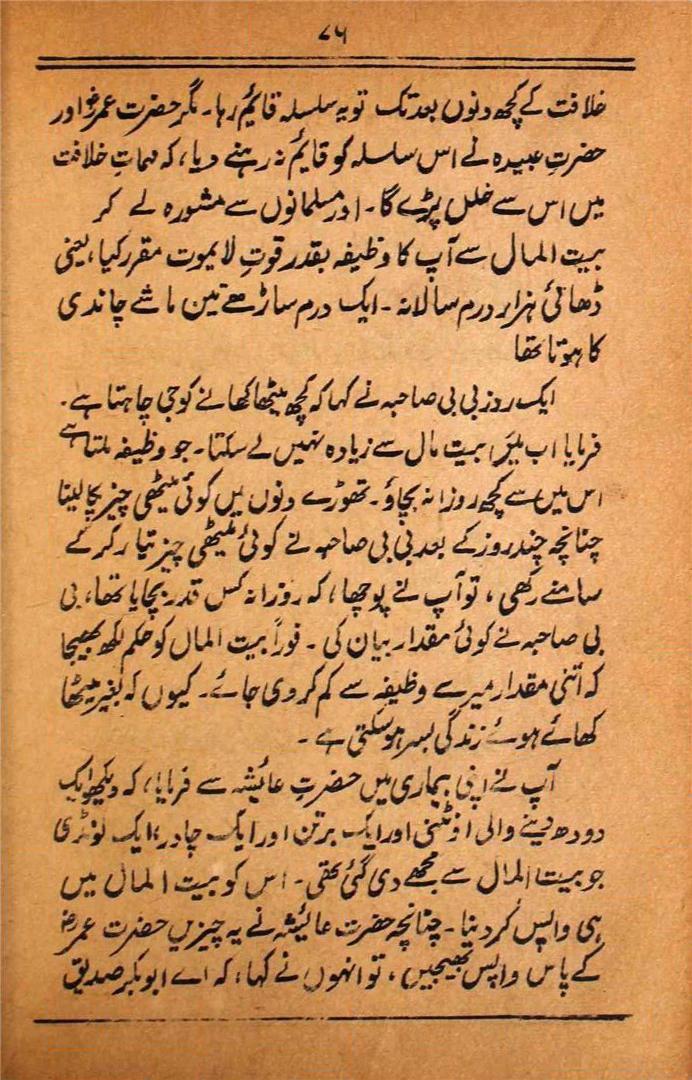 ۷۶
خلافت کے کچھ دنوں بعد تک تو یہ سلسلہ قائیم رہا۔ مگر حضرت عمرؓ اور
حضرتِ عبیدہ نے اس سلسلہ کو قائیم نہ رہنے دیا، کہ مہماتِ خلافت
میں اس سے خلل پڑے گا۔ اور مسلمانوں سے مشورہ لے کر
بیت المال سے آپ کا وظیفہ بقدر قوتِ لایموت مقرر کیا، یعنی
ڈھائی ہزار درم سالانہ۔ ایک درم ساڑھے تین ماشے چاندی
کا ہوتا تھا
ایک روز بی بی صاحبہ نے کہا کہ کچھ میٹھا کھانے کو جی چاہتا ہے۔
فرمایا اب میَں بیت مال سے زیادہ نہیں لے سکتا۔ جو وظیفہ ملتا ہے
اس میں سے کچھ روزانہ بچاؤ۔ تھوڑے دنوں میں کوئی میٹھی چیز پکا لینا
چنانچہ چند روز کے بعد بی بی صاحبہ نے کوئی میٹھی چیز تیار کر کے
سامنے رکھی، تو آپ نے پوچھا، کہ روزانہ کس قدر بچایا تھا، بی
بی صاحبہ نے کوئی مقدار بیان کی۔ فوراً بیت المال کو حکم لکھ بھیجا
کہ اتنی مقدار میرے وظیفہ سے کم کر دی جائے۔ کیوں کہ بغیر میٹھا
کھائے ہوئے زندگی بسر ہو سکتی ہے۔
آپ نے اپنی بیماری میں حضرتِ عائیشہ سے فرمایا، کہ دیکھو ایک
دودھ دینے والی اونٹنی اور ایک برتن اور ایک چادر، ایک لونڈی
جو بیت المال سے مجھے دی گئی تھی۔ اس کو بیت المال میں
ہی واپس کر دینا۔ چنانچہ حضرت عائیشہ نے یہ چیزیں حضرت عمرؓ
کے پاس واپس بھیجیں، تو انہوں نے کہا، کہ اے ابوبکر صدیق